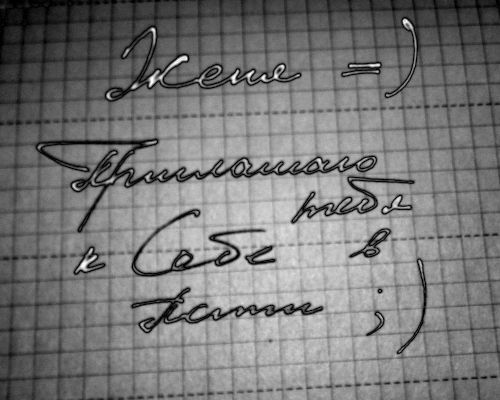 Женя =)
Приглашаю
тебя
к Себе в
Пати ;)